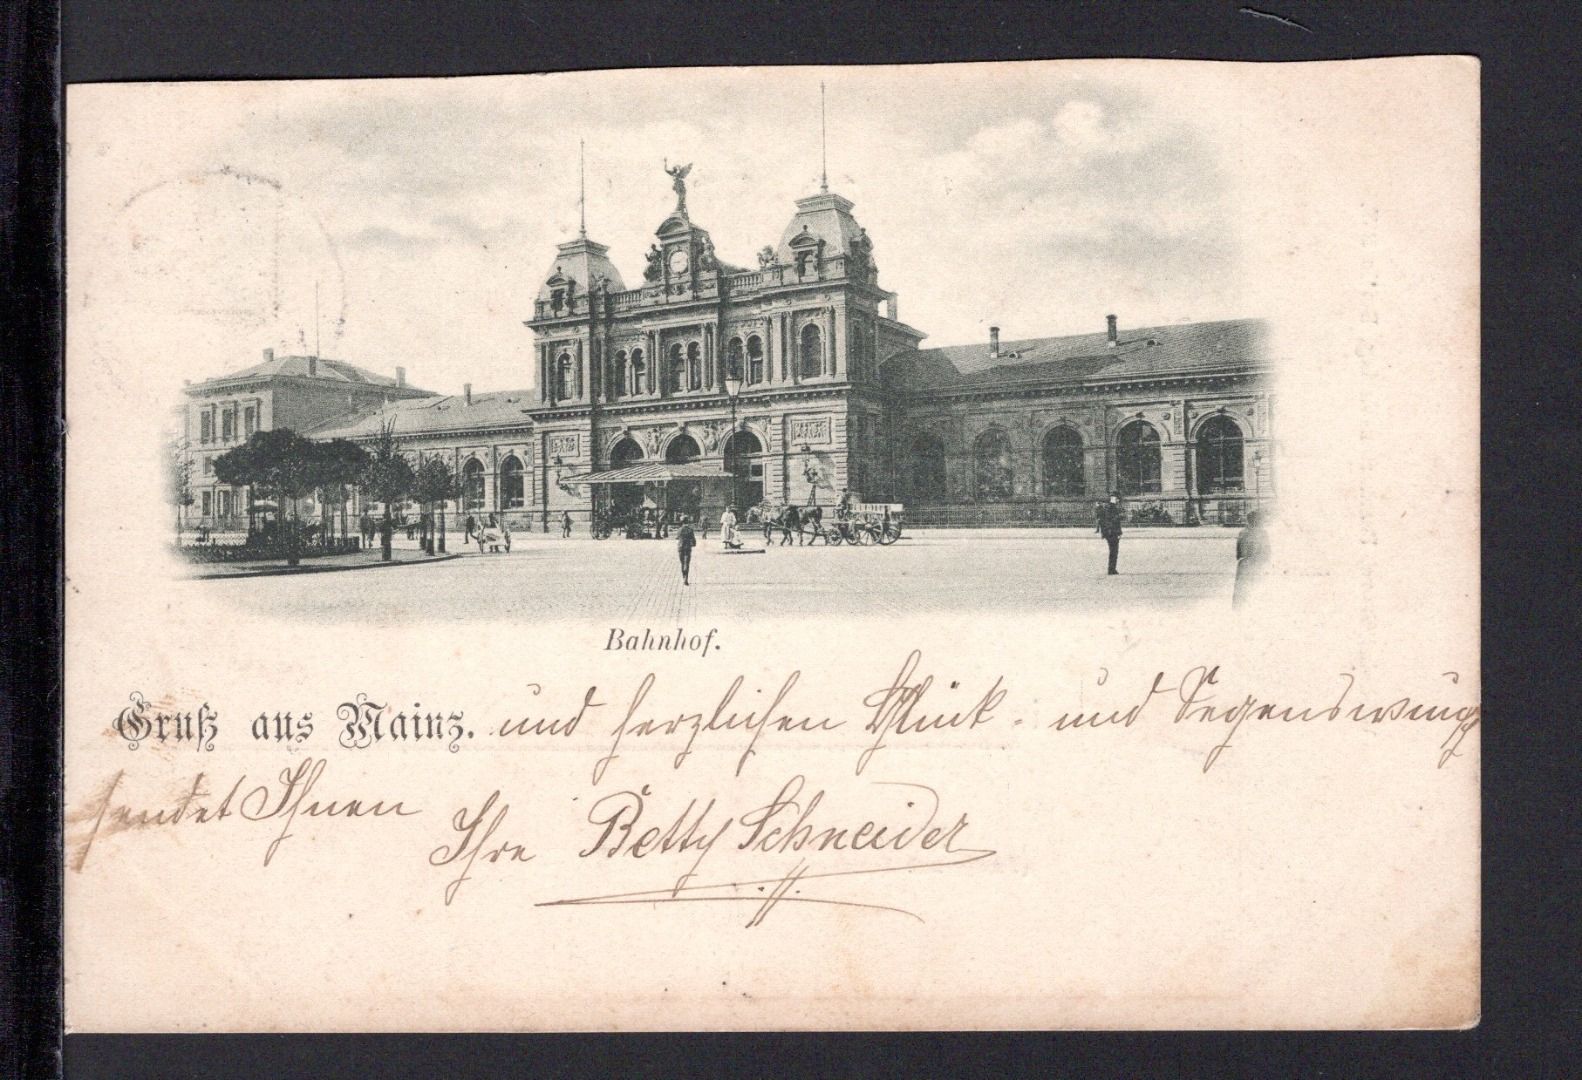 Bahnhof.
Gruß aus Mainz. und herzlichen Glück- und Segenswunsch
sendet Ihnen
Ihre Betty Schneider